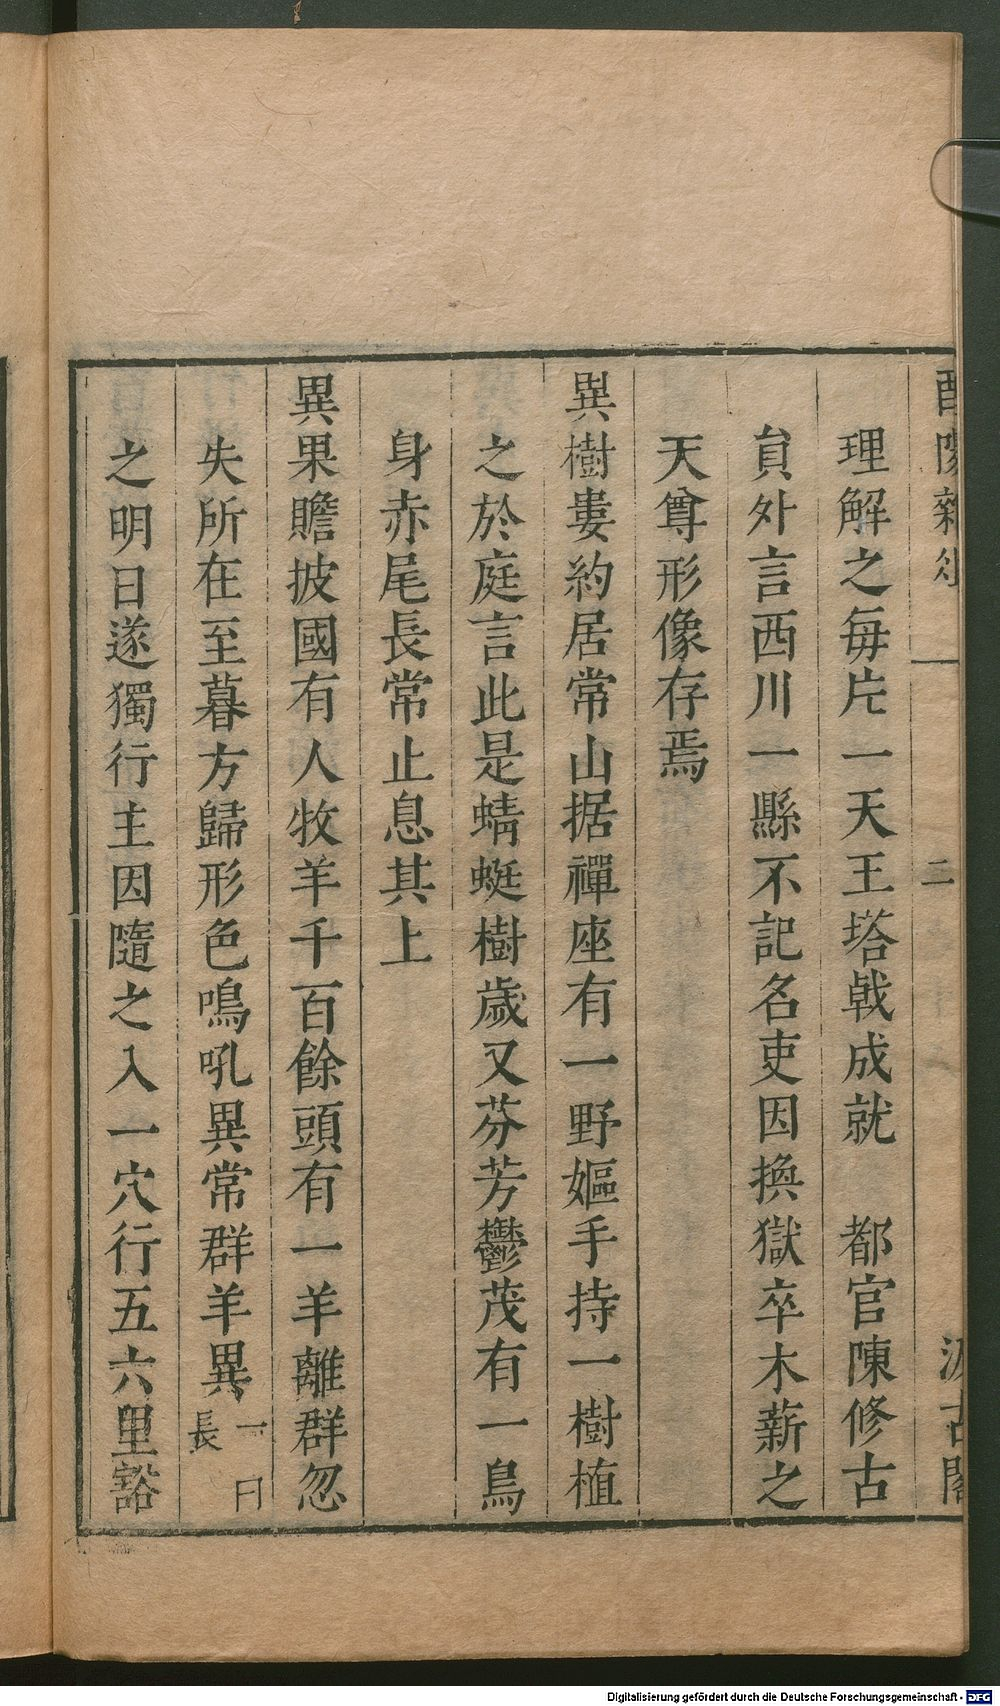 酉陽雜俎 一 二 汲古閣
理解之每片一天王塔戟成就 都官陳修古
員外言西川一縣不記名吏因換獄卒木薪之
天尊形像存焉
異樹婁約居常山据禪座有一野嫗手持一樹植
之於庭言此是蜻蜓樹歲乂芬芳鬱茂有一鳥
身赤尾長常止息其上
異果贍披國有人牧羊千百餘頭有一羊離群忽
失所在至暮方歸形色鳴吼異常群羊異一曰長
之明日遂獨行主因隨之入一穴行五六里豁
Digitalisierung gefördert durch die Deutsche Forschungsgemeinschaft - DFG